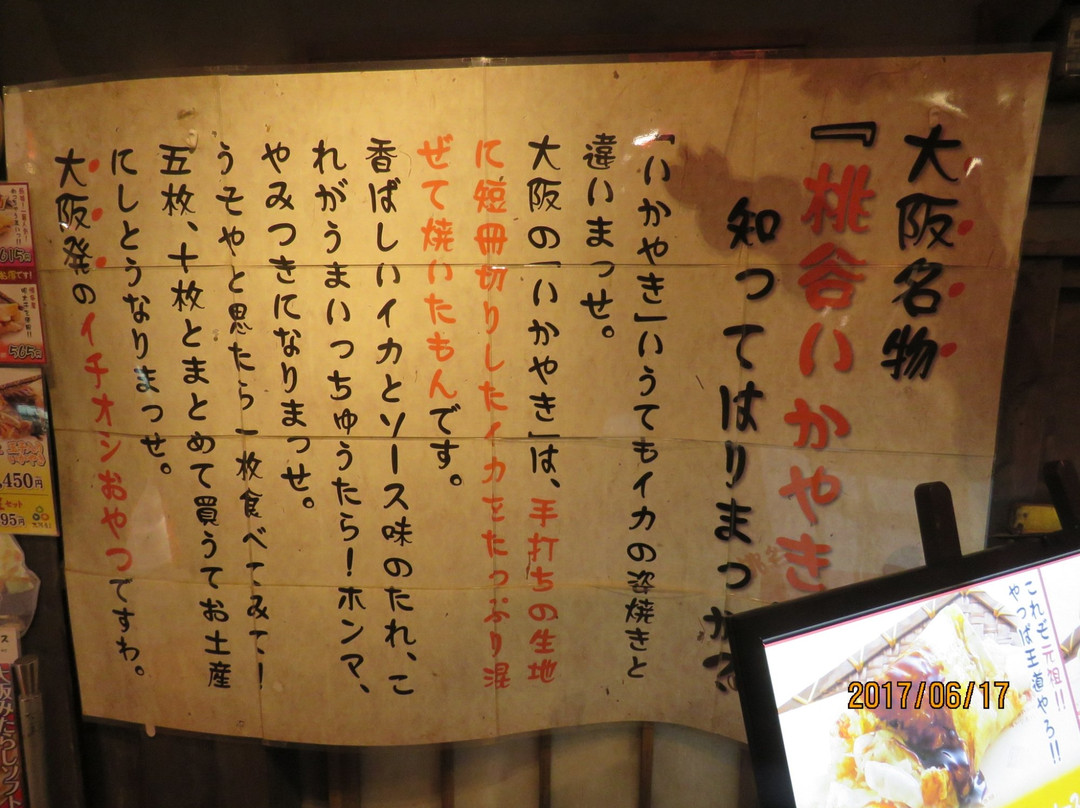 大阪名物
『桃谷いかやき
知ってはりまっか？
「いかやき」いうてもイカの姿焼きと
違いまっせ。
大阪の「いかやき」は、手打ちの生地
に短冊切りしたイカをたっぷり混
ぜて焼いたもんです。
香ばしいイカとソース味のたれ、こ
れがうまいいっちゅうたら！ホンマ、
やみつきになりまっせ。
うそやと思たら一枚食べてみて！
五枚、十枚とまとめて買うてお土産
にしとうなりまっせ。
大阪発のイチオシおやつですわ。
これぞ元祖!!
やっぱ王道やろ!!
2017/06/17
505円
,450円
セット
95円
大阪みたらしソフト